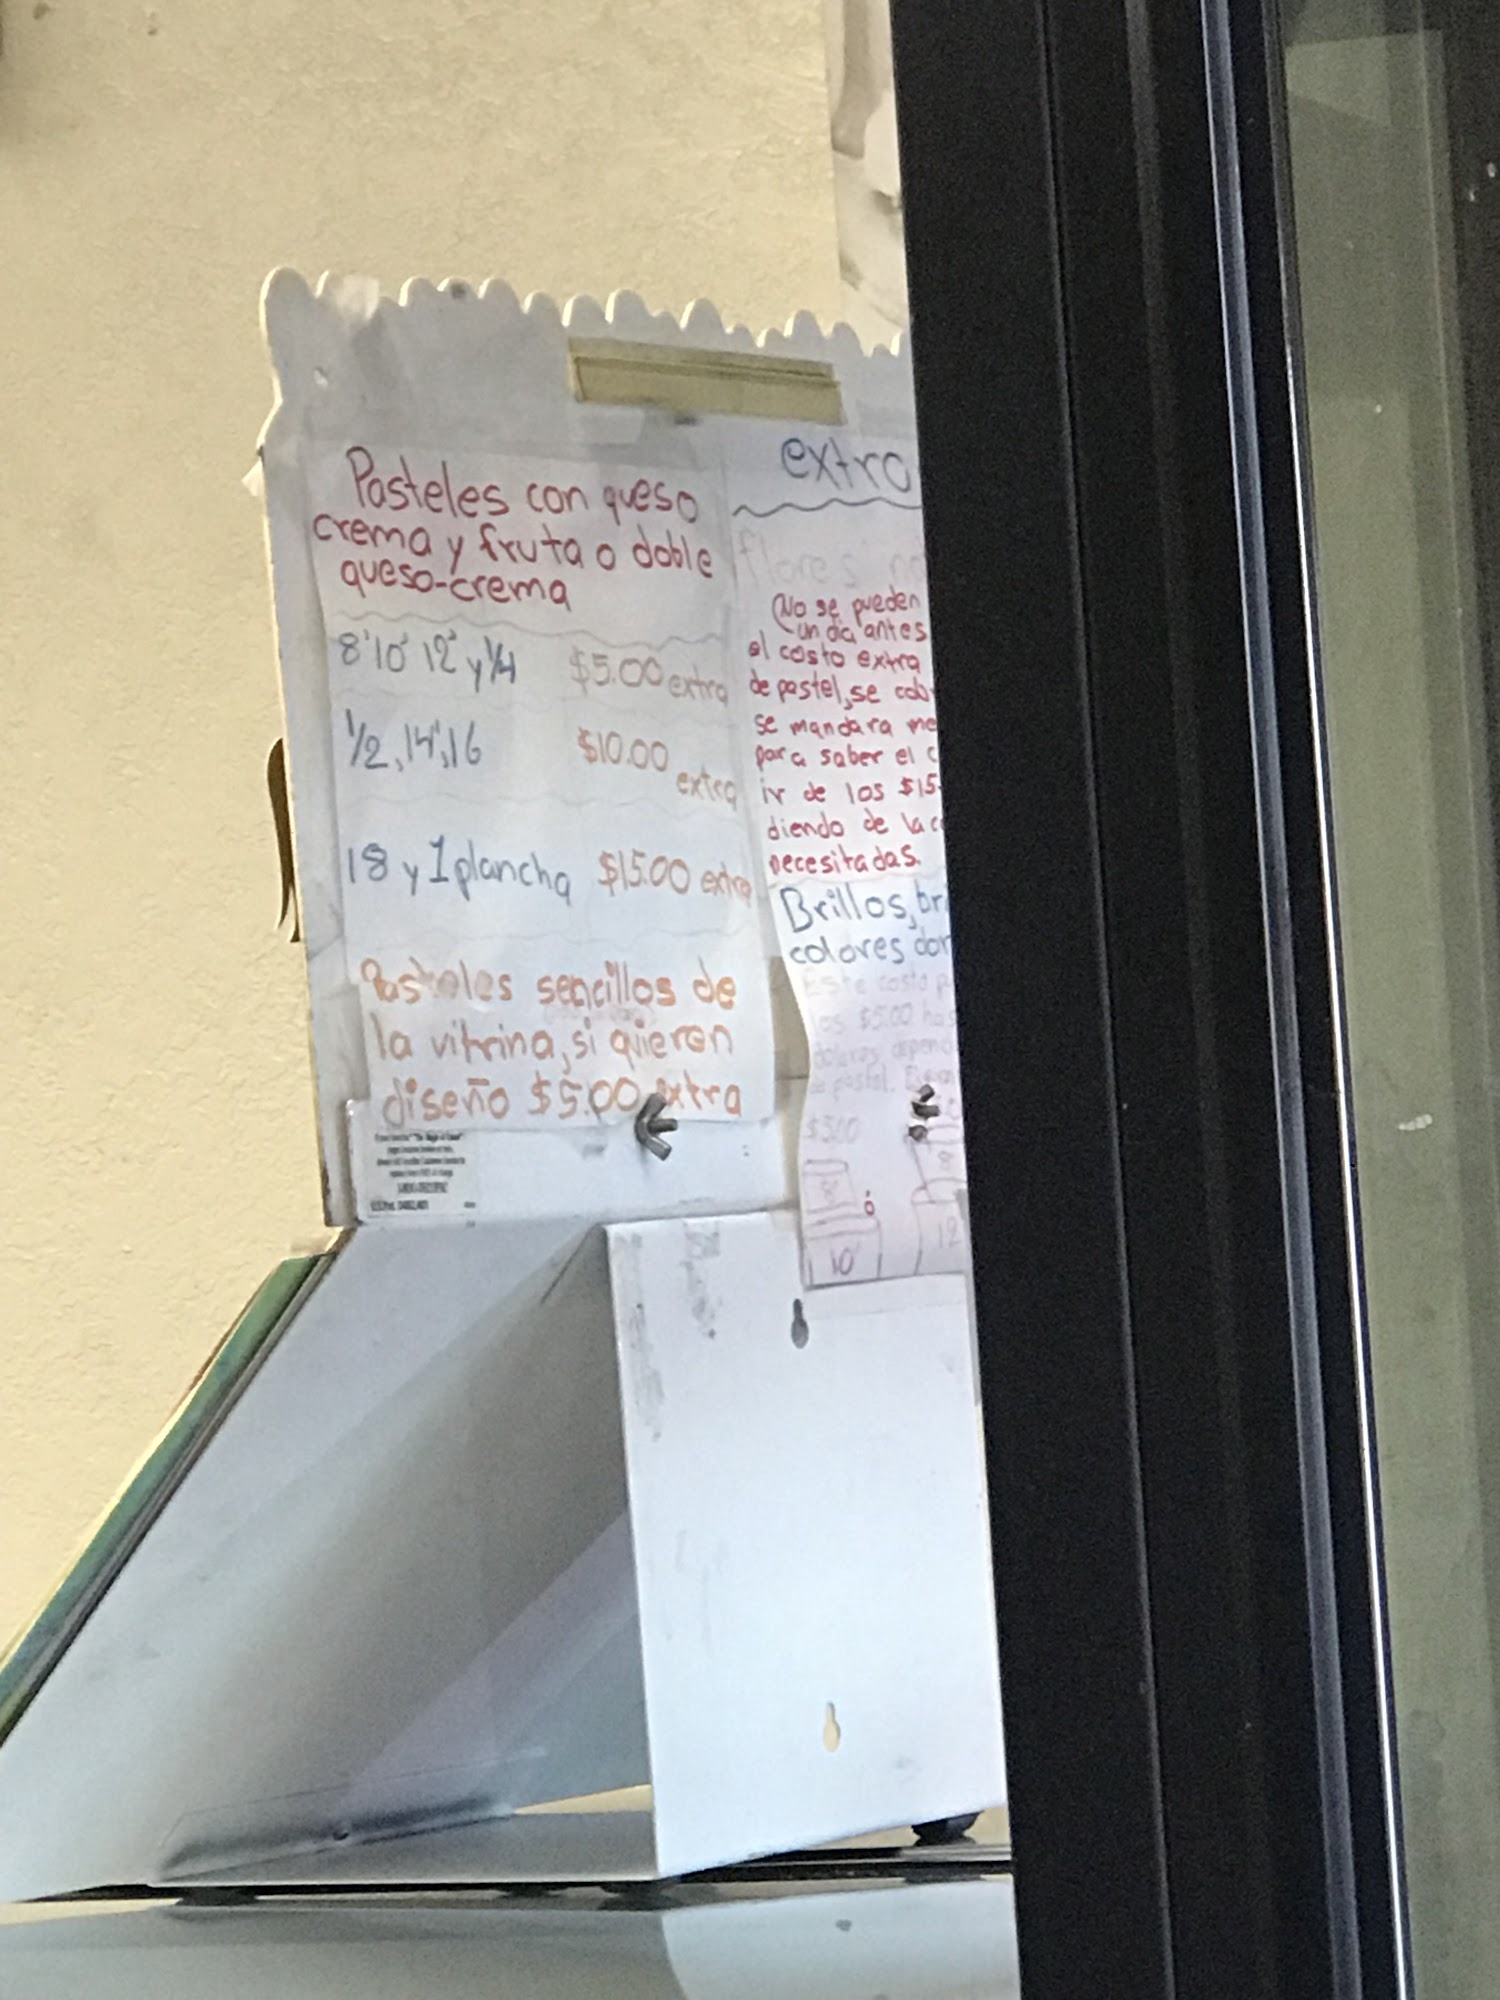 Pasteles con queso
crema y fruta o doble
queso-crema
8" 10" 12" y 1/4 $5.00 extra
1/2, 14", 16 $10.00
extra
18 y 1 plancha $15.00 extra
Pasteles sencillos de
la vitrina, si quieren
diseño $5.00 extra
extra
flores
(No se pueden
un dia antes
el costo extra
de pastel, se
se mandara
para saber el
ir de los $15
diendo de la
necesitadas.
Brillos,
colores
Este costo
los $5.00
dolares
pastel.
$5.00
8"
ó
10"
12